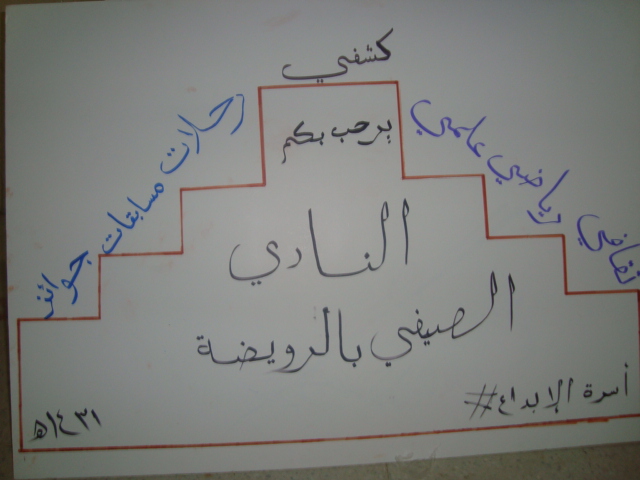 كشفي
يرحب بكم
علمي رياضي ثقافي
رحلات مسابقات جوائز
النادي
الصيفي بالرويضة
أسرة الإبداع#
١٤٣١ه